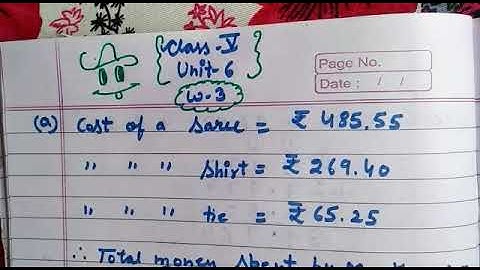 Class-V
Unit-6
W-3
Page No.
Date : / /
(a) Cost of a saree = ₹ 485.55
" " " shirt = ₹ 269.40
" " " tie = ₹ 65.25
∴ Total money spent by